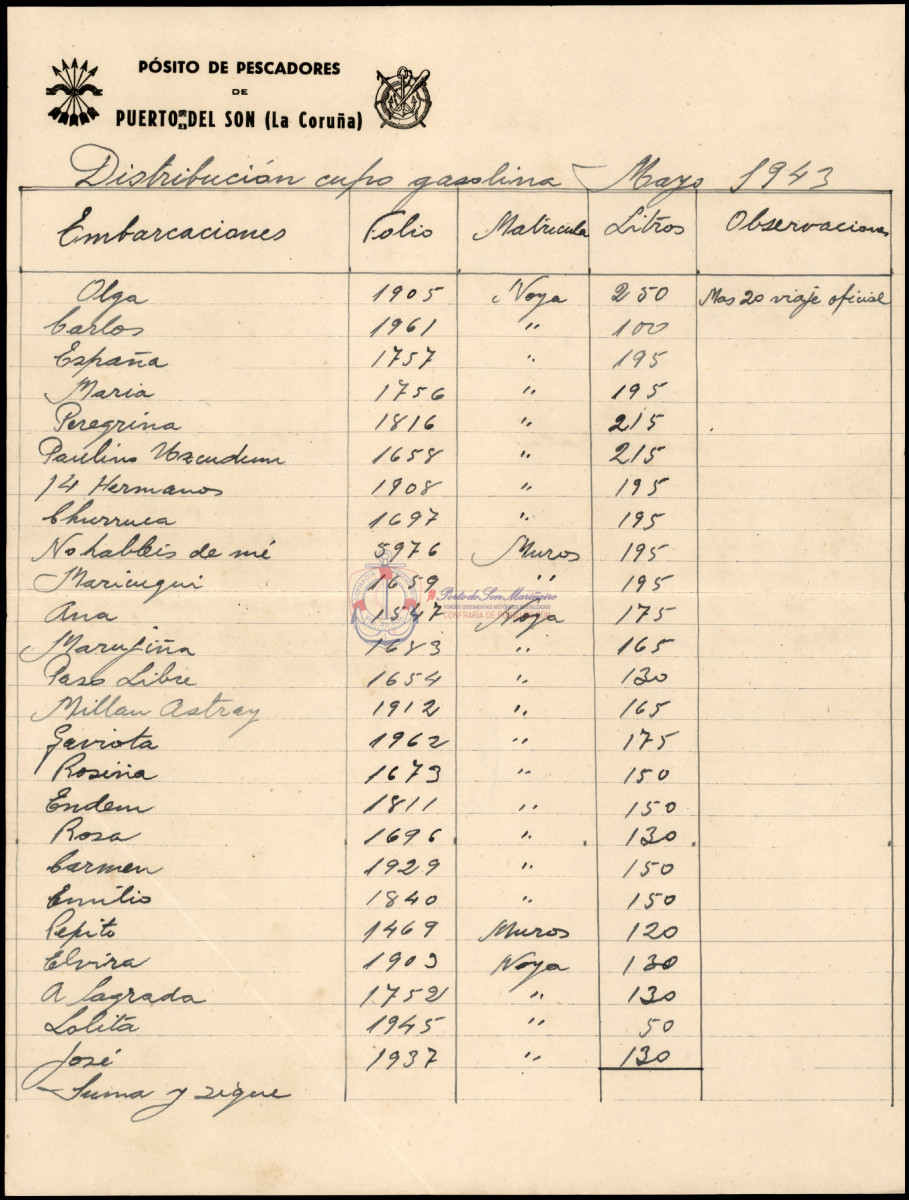 PÓSITO DE PESCADORES
DE
PUERTO DEL SON (La Coruña)
Distribución cupo gasolina - Mayo 1943
Embarcaciones Folio Matrícula Litros Observaciones
Olga 1905 Noya 250 Mas 20 viaje oficial
Carlos 1961 " 100
España 1757 " 195
Maria 1756 " 195
Peregrina 1816 " 215
Paulino Uzcudum 1658 " 215
14 Hermanos 1908 " 195
Churruca 1697 " 195
No hableis de mé 5976 Muros 195
Maricuqui 1659 " 195
#Porto do Son Mariñeiro
FONDOS DOCUMENTAIS HISTÓRICOS DIXITALIZADOS
CONFRARÍA DE PORTO DO SON
Ana 1547 Noya 175
Marufiña 1683 " 165
Paso Libre 1654 " 130
Millan Astray 1912 " 165
Gaviota 1962 " 175
Rosiña 1673 " 150
Endem 1811 " 150
Rosa 1696 " 130
Carmen 1929 " 150
Emilio 1840 " 150
Pepito 1469 Muros 120
Elvira 1903 Noya 130
A lagrada 1752 " 130
Lolita 1945 " 50
José 1937 " 130
Suma y sigue